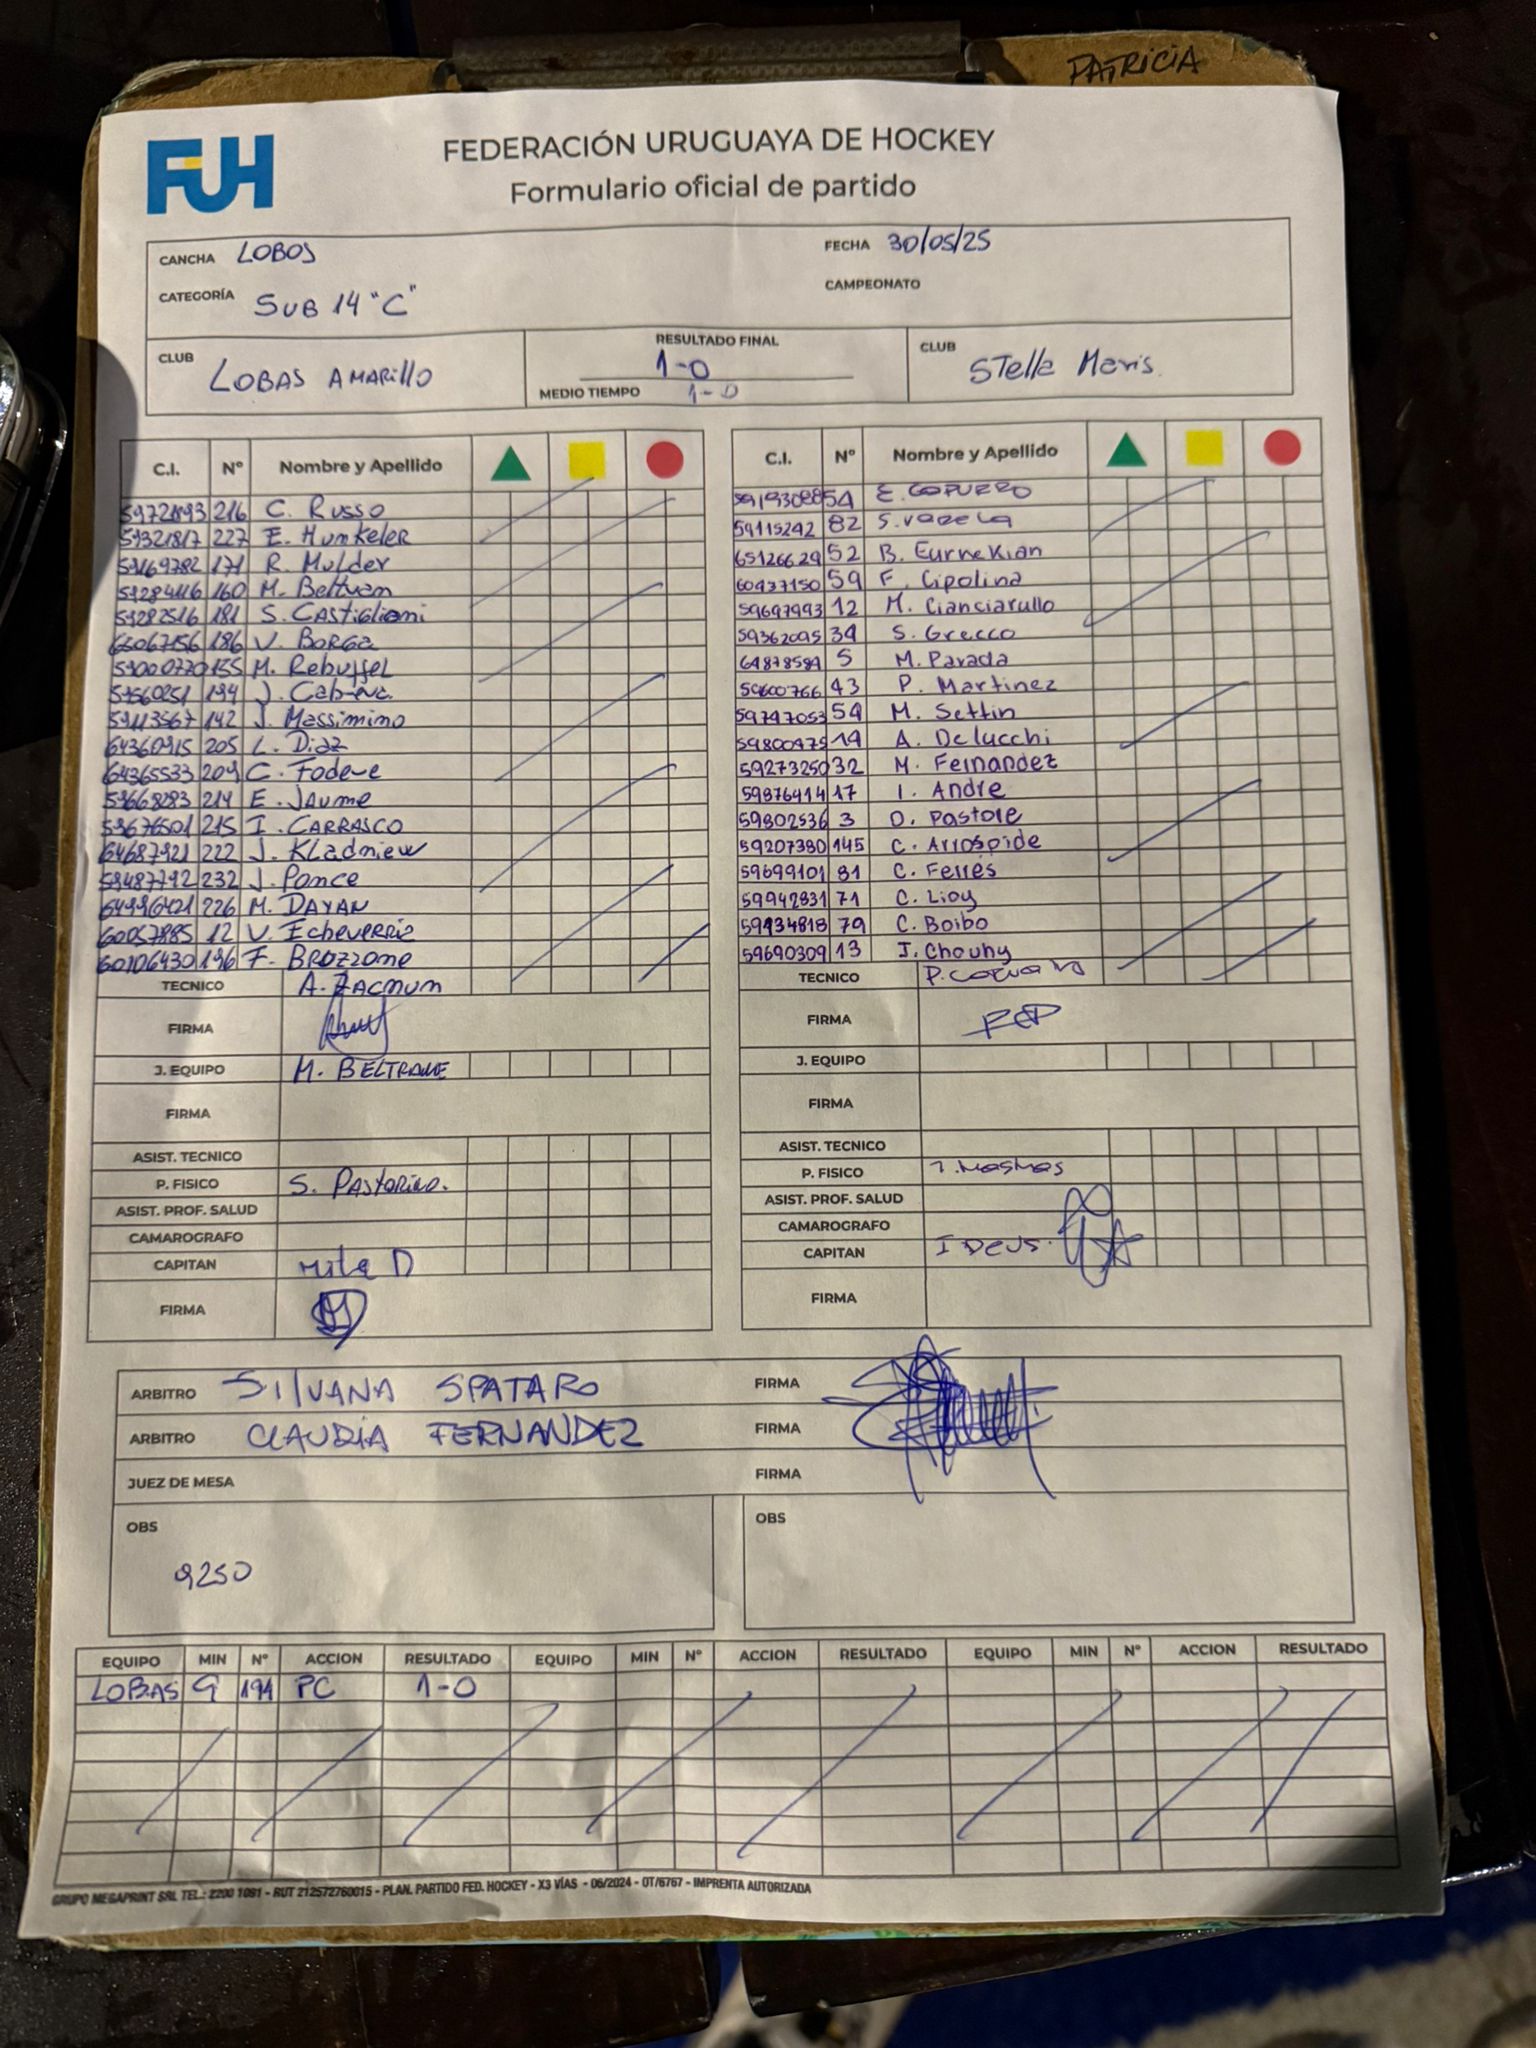 PATRICIA
FUH
FEDERACIÓN URUGUAYA DE HOCKEY
Formulario oficial de partido
CANCHA LOBOS
FECHA 30/05/25
CATEGORÍA SUB 14 "C"
CAMPEONATO
CLUB LOBAS AMARILLO
RESULTADO FINAL 1-0
MEDIO TIEMPO 1-0
CLUB Stella Maris.
C.I. Nº Nombre y Apellido
59721893 216 C. Russo
59321817 227 E. Hunkeler
59169782 171 R. Mulder
59284116 160 M. Beltran
59282516 181 S. Castiglioni
65067156 186 V. Borga
59000770 155 M. Rebuffel
59560251 194 J.
59113567 142 J. Massimino
64360915 205 L. Diaz
64365533 209 C. Fodere
59668283 214 E. Jaume
59676501 215 I. CARRASCO
64687921 222 J. Kladniew
59487792 232 J. Ponce
64996421 226 M. DAYAN
60057885 12 V. Echeverria
60106430 196 F. Brozzone
TECNICO A. Zacnun
FIRMA
J. EQUIPO M. BELTRAME
FIRMA
ASIST. TECNICO
P. FISICO S. Pastorino.
ASIST. PROF. SALUD
CAMAROGRAFO
CAPITAN Mila D
FIRMA
C.I. Nº Nombre y Apellido
59193088 54 E. COPURRO
59115242 82 S. Varela
65126629 52 B. Eurnekian
60437150 59 F. Cipolina
59697993 12 M. Cianciarullo
59362095 34 S. Grecco
64878594 5 M. Parada
59600766 43 P. Martinez
59747053 54 M. Settin
59800475 19 A. Delucchi
59273250 32 M. Fernandez
59876414 17 I. Andre
59802536 3 D. Pastore
59207380 145 C. Arrospide
59699101 81 C. Ferrés
59942831 71 C. Lioy
59434818 79 C. Boibo
59690309 13 J. Chouhy
TECNICO
FIRMA
J. EQUIPO
FIRMA
ASIST. TECNICO
P. FISICO
ASIST. PROF. SALUD
CAMAROGRAFO
CAPITAN I DEUS.
FIRMA
ARBITRO SILVANA SPATARO FIRMA
ARBITRO CLAUDIA FERNANDEZ FIRMA
JUEZ DE MESA FIRMA
OBS
9250
OBS
EQUIPO MIN Nº ACCION RESULTADO EQUIPO MIN Nº ACCION RESULTADO EQUIPO MIN Nº ACCION RESULTADO
LOBAS 9 194 PC 1-0
GRUPO MEGAPRINT SRL TEL.: 2200 1091 - RUT 212572760015 - PLAN. PARTIDO FED. HOCKEY - X3 VÍAS - 06/2024 - OT/6767 - IMPRENTA AUTORIZADA